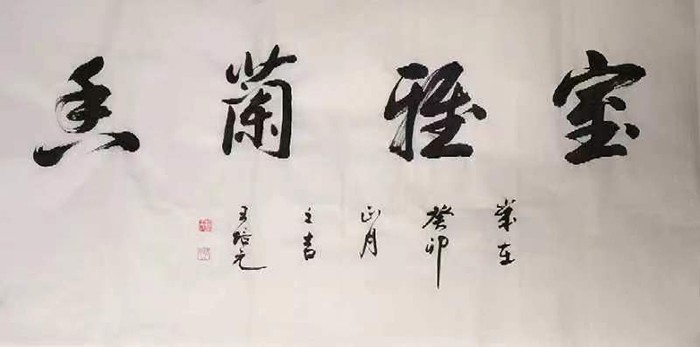 室雅蘭香
歲在
癸卯
正月
之吉
王培元